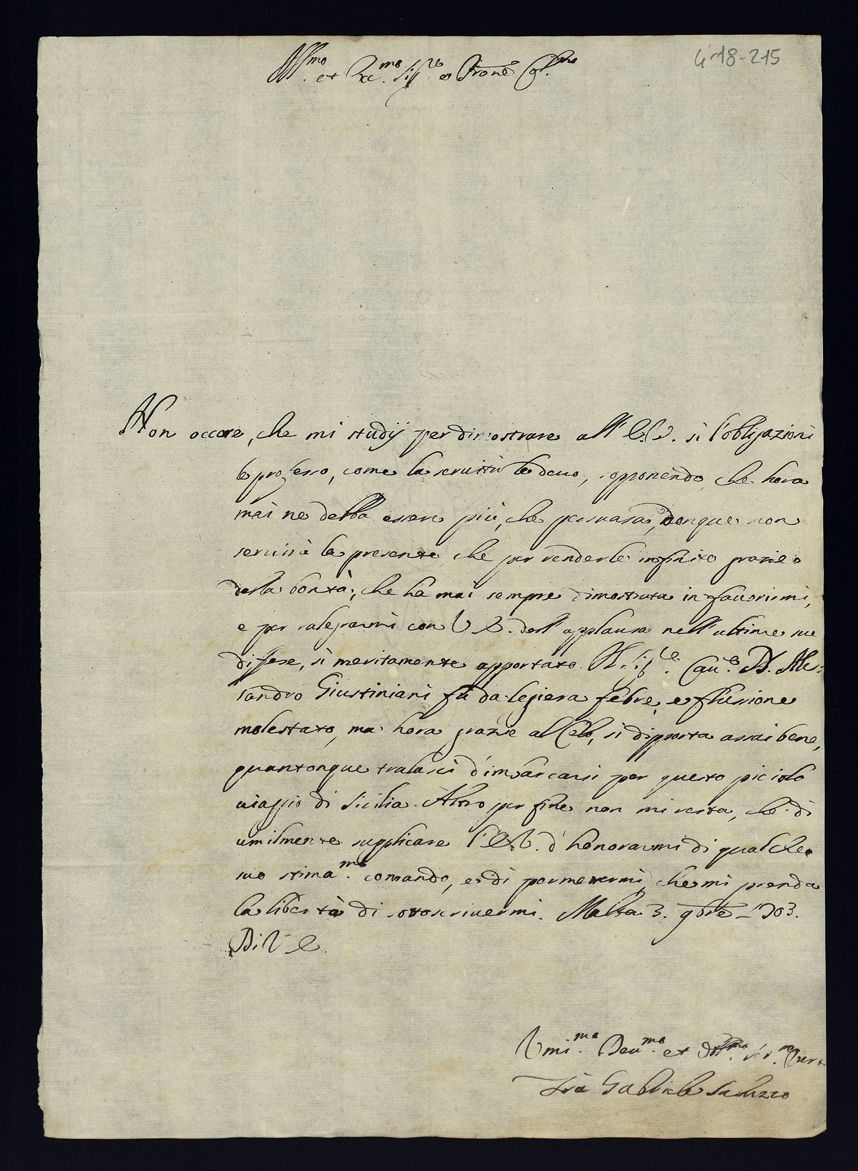 4-18-215
Ill.mo et Ecc.mo Sig.re e Prone Col.mo
Non occore, che mi studij per dimostrare all' E.V. sì l'obligazioni
le professo, come la servitù le devo, sopponendo, che hora
mai ne debba essere più, che persuasa, donque non
servirà la presente che per renderle infinite grazie
della bontà, che ha mai sempre dimostrata in favorirmi,
e per ralegrarmi con V.E. dell'applauso nell'ultime sue
diffese, sì meritamente apportato. Il Sig.re Cav.e D. Ales-
sandro Giustiniani fù da legiera febre, e flussione
molestato, ma hora grazie al Celo, si diporta assai bene,
quantonque tralasci d'imbarcarsi per questo piciolo
viaggio di Sicilia. Altro per fine non mi resta, che di
umilmente supplicare l'E.V. d'honorarmi di qualche
suo stima.mo comando, e di permetermi, che mi prenda
la libertà di sotoscrivermi. Malta 3. 9bre 1703.
Di V.E.
Umi.mo Dev.mo et Obl.mo Ser.
Frà Gabriele Saluzzo